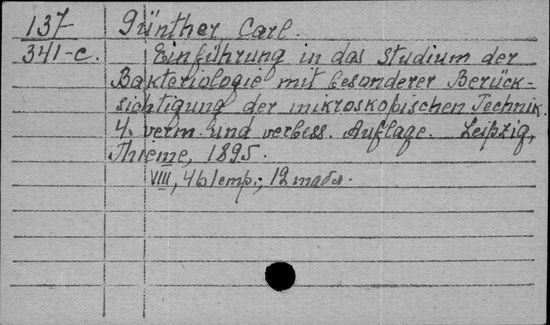 137 Günther Carl.
341-c. Einführung in das Studium der
Bakteriologie mit besonderer Berück-
sichtigung der mikroskopischen Technik.
4. verm. und verbess. Auflage. Leipzig,
Thieme, 1895.
VIII, 461 emp.; 12 табл.